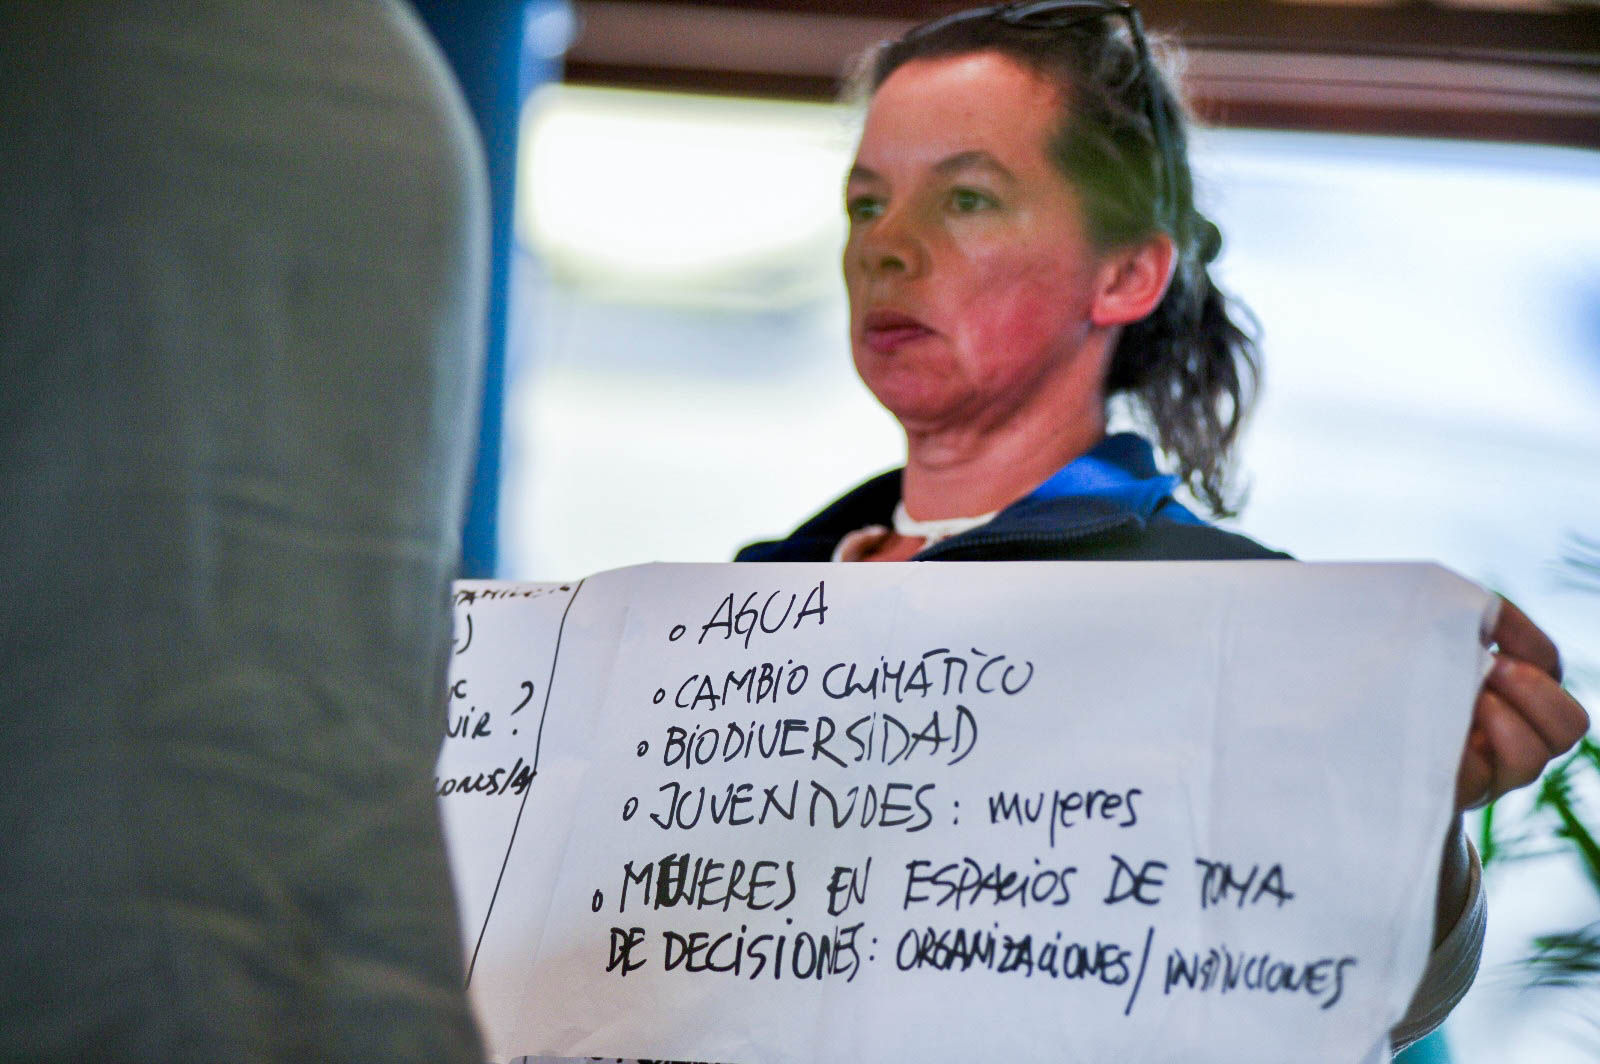 ?
o AGUA
o CAMBIO CLIMÁTICO
o BIODIVERSIDAD
o JUVENTUDES: mujeres
o MUJERES EN ESPACIOS DE TOMA
DE DECISIONES: ORGANIZACIONES/INSTITUCIONES